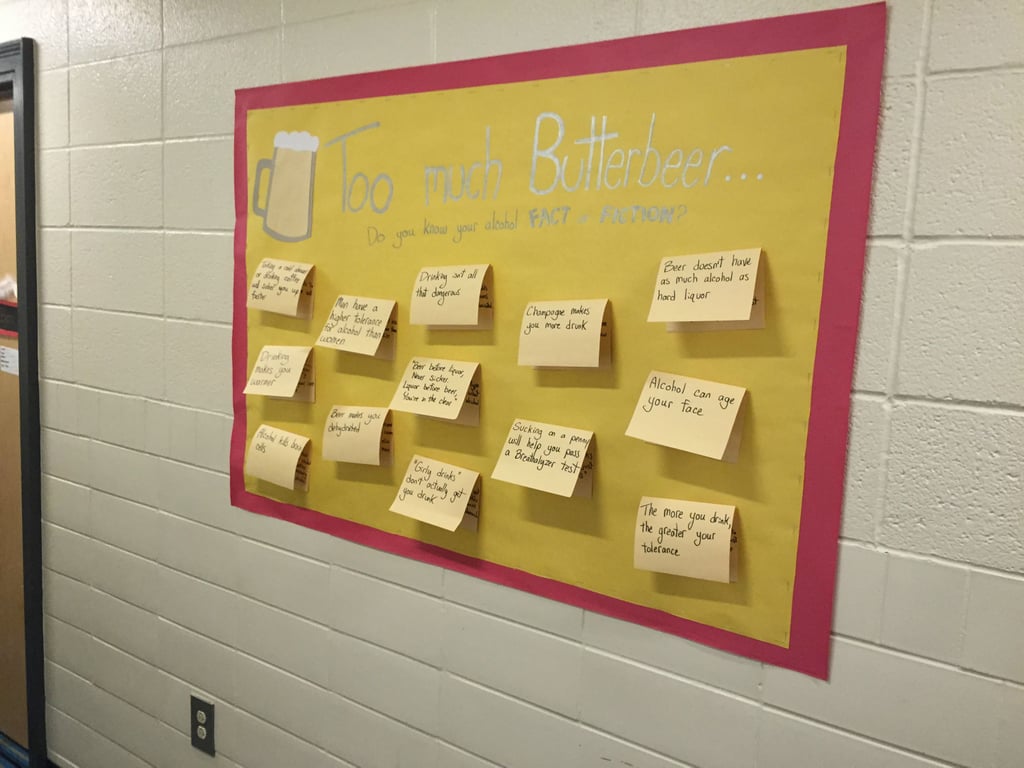 Too much Butterbeer...
Do you know your alcohol FACT or FICTION?
Taking a cold shower
or drinking coffee
will sober you up
faster
Men have a
higher tolerance
for alcohol than
women
Drinking isn't all
that dangerous
Champagne makes
you more drunk
Beer doesn't have
as much alcohol as
hard liquor
Drinking
makes you
warmer
"Beer before liquor,
Never sicker,
Liquor before beer,
You're in the clear"
Alcohol can age
your face
Beer makes you
dehydrated
Alcohol kills brain
cells
Sucking on a penny
will help you pass
a Breathalyzer test
"Girly drinks"
don't actually get
you drunk
The more you drink,
the greater your
tolerance